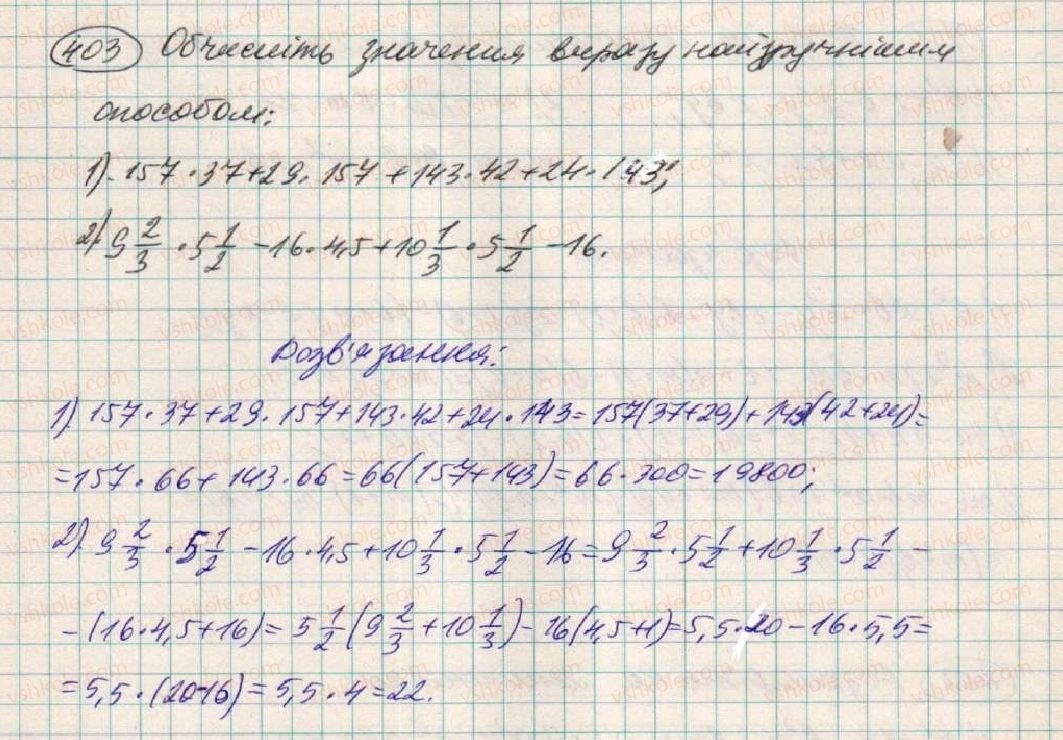 403 Обчисліть значення виразу найзручнішим
способом:
1) 157·37+29·157+143·42+24·143;
2) 9 2/3 · 5 1/2 - 16·4,5 + 10 1/3 · 5 1/2 - 16.
Розв'язання:
1) 157·37+29·157+143·42+24·143=157(37+29)+143(42+24)=
=157·66+143·66=66(157+143)=66·300=19800;
2) 9 2/3 · 5 1/2 - 16·4,5 + 10 1/3 · 5 1/2 - 16 = 9 2/3 · 5 1/2 + 10 1/3 · 5 1/2 -
-(16·4,5+16) = 5 1/2 (9 2/3 + 10 1/3) - 16(4,5+1)=5,5·20-16·5,5=
=5,5·(20-16)=5,5·4=22.
vshkole.com